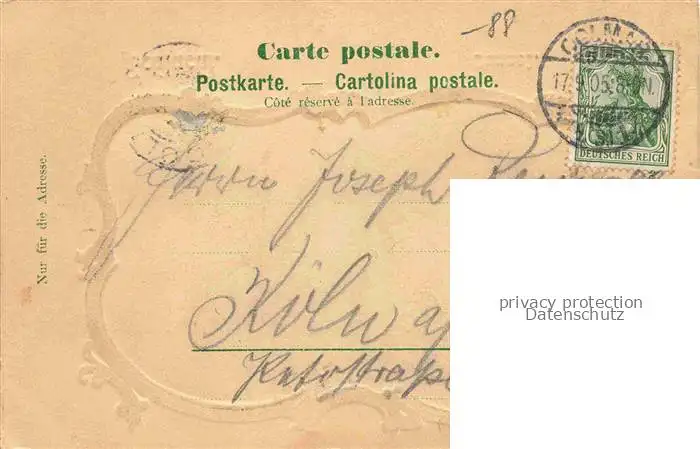 -88
Carte postale.
Postkarte. — Cartolina postale.
Côté réservé à l'adresse.
COLMAR
17. 05. 8-
DEUTSCHES REICH
Nur für die Adresse.
Herrn Joseph
Köln a/
privacy protection
Datenschutz